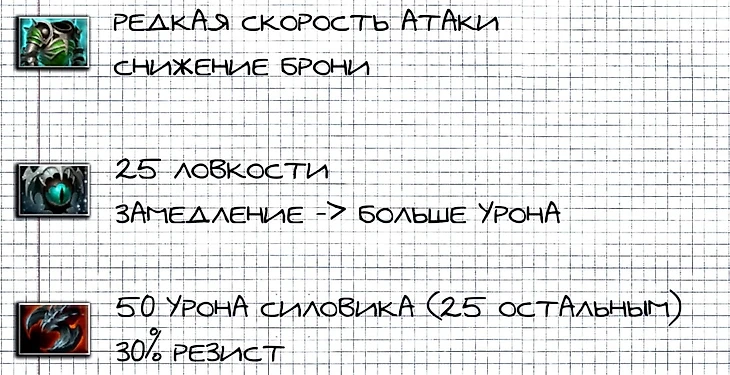 РЕДКАЯ СКОРОСТЬ АТАКИ
СНИЖЕНИЕ БРОНИ
25 ЛОВКОСТИ
ЗАМЕДЛЕНИЕ -> БОЛЬШЕ УРОНА
50 УРОНА СИЛОВИКА (25 ОСТАЛЬНЫМ)
30% РЕЗИСТ